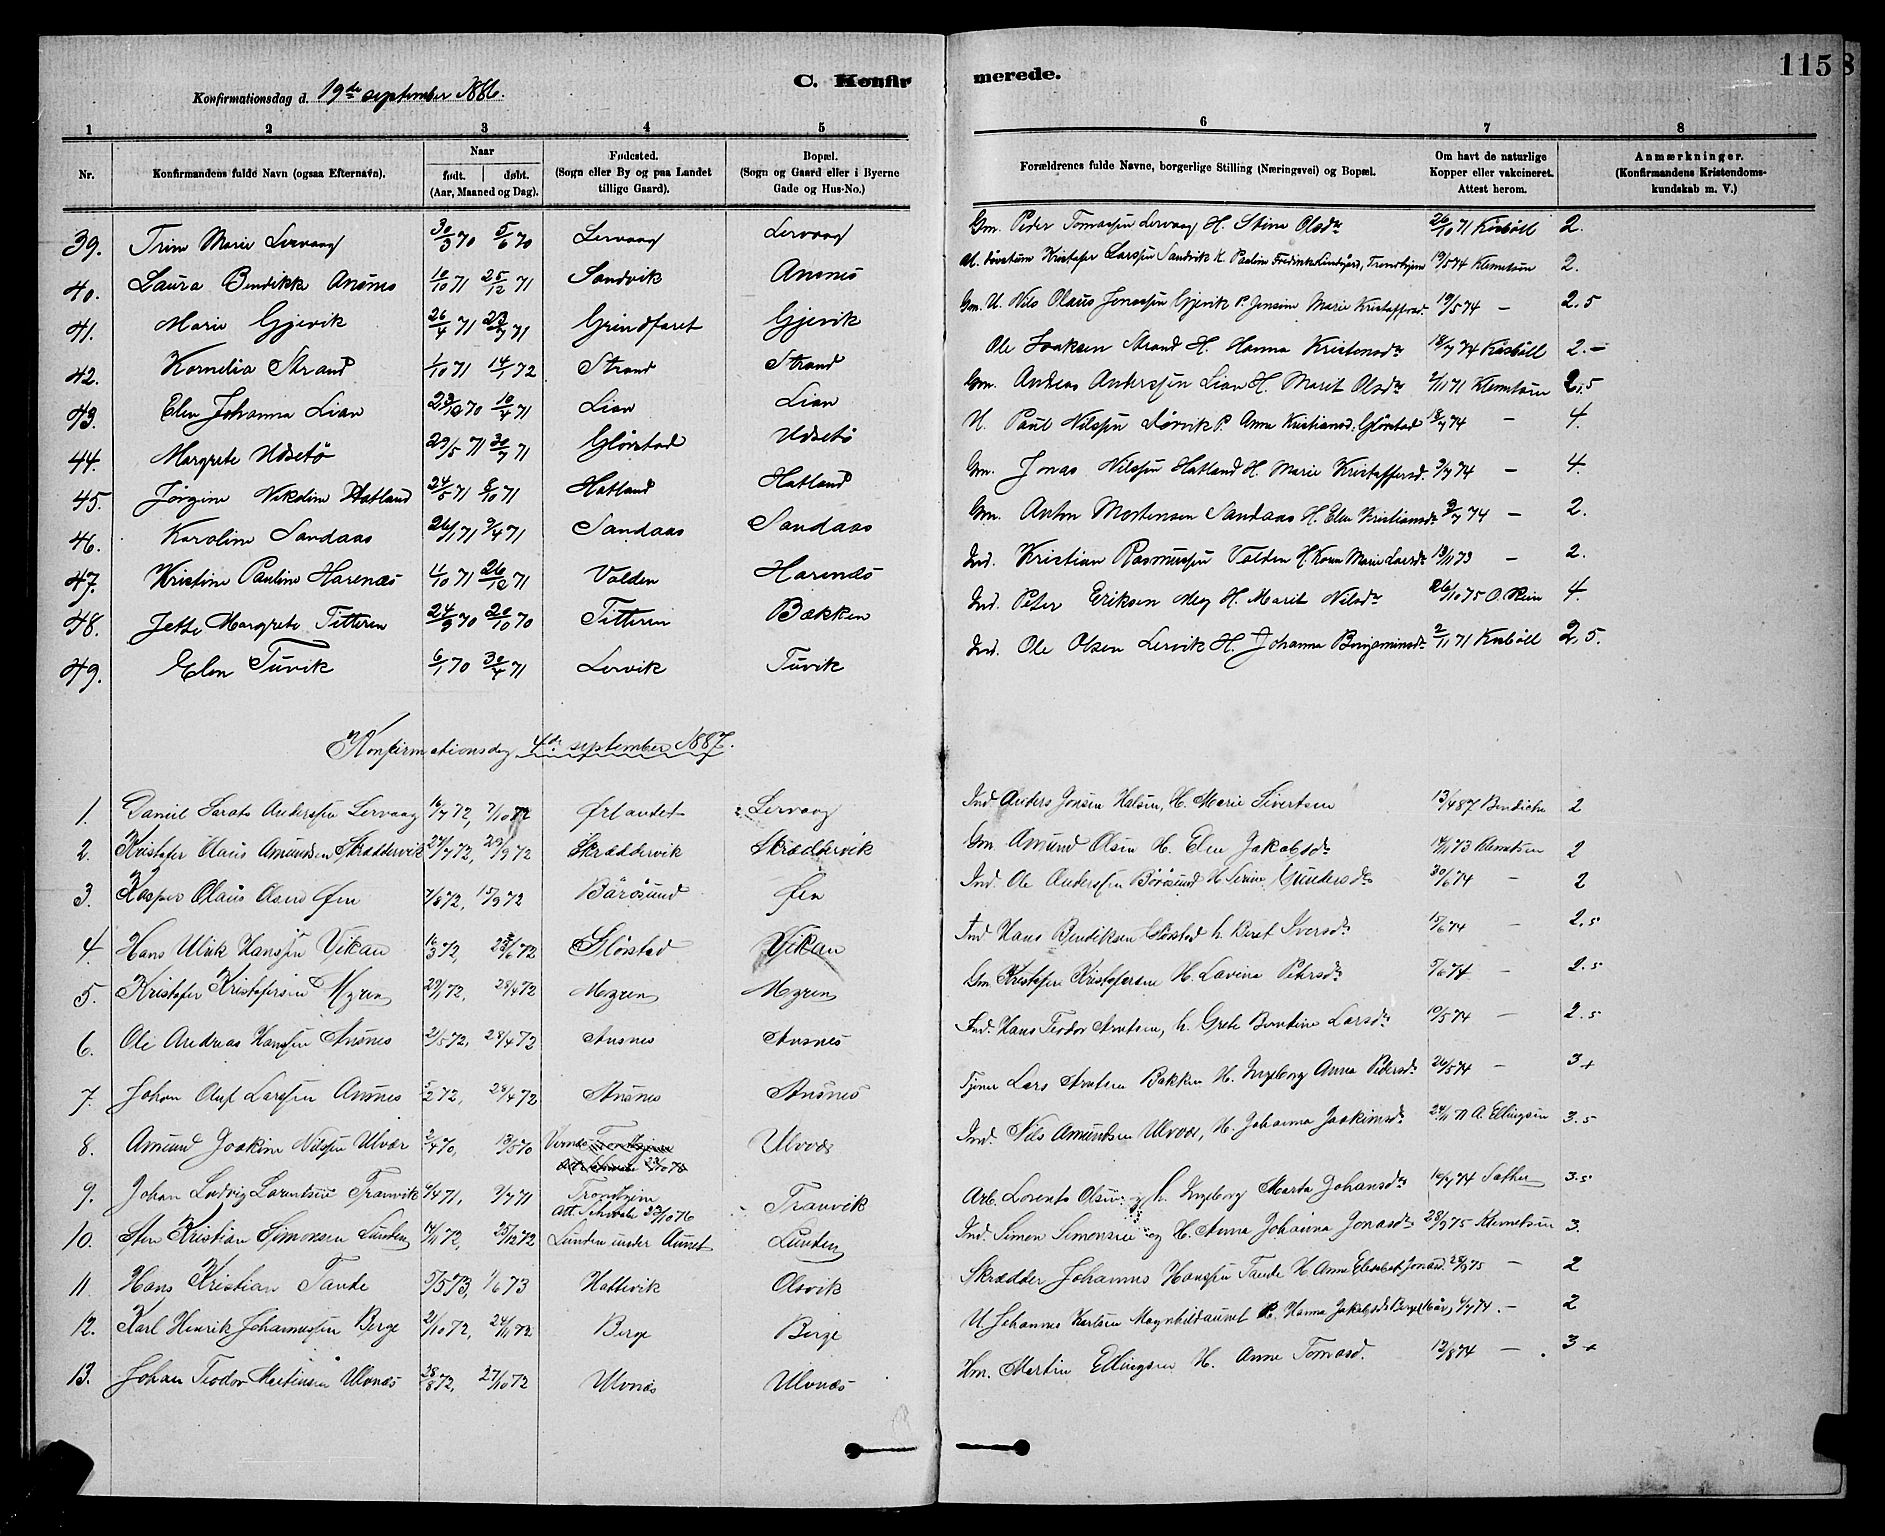 115
C. Konfirmerede.
Konfirmationsdag d. 19de september 1886.
1 2 3 4 5 6 7 8
Nr.
Konfirmandens fulde Navn (ogsaa Efternavn).
Naar født. døbt. (Aar, Maaned og Dag).
Fødested. (Sogn eller By og paa Landet tillige Gaard).
Bopæl. (Sogn og Gaard eller i Byerne Gade og Hus-No.)
Forældrenes fulde Navne, borgerlige Stilling (Næringsvei) og Bopæl.
Om havt de naturlige Kopper eller vakcineret. Attest herom.
Anmærkninger. (Konfirmandens Kristendomskundskab m. V.)
39. Trine Marie Lervaag 30/3 70 5/6 70 Lervaag Lervaag Gm. Peder Tomassen Lervaag H. Stine Olsdr 26/10 71 2.
40. Laura Bendikke Ansnes 10/10 71 25/12 71 Sandvik Ansnes Kristofer Larssen Sandvik Trondhjem 19/5 74 Klemetsen 2.
41. Marie Gjevik 26/4 71 23/7 71 Grindfaret Gjevik Gm. U. Nils Olaus Jonassen Gjevik P. Jensine Marie Kristoffersd. 19/5 74 — 2.5
42. Kornelia Strand 1/10 71 14/1 72 Strand Strand Ole Isaksen Strand H. Hanna Kristensdr 18/7 74 2.—
43. Elen Johanna Lian 23/12 70 10/4 71 Lian Lian Gm. Andreas Anderssen Lian H. Marit Olsdr 2/11 71 Klemetsen 2.5
44. Margrete Udsetø 29/5 71 30/7 71 Gløsstad Udsetø U. Paul Nilssen Dørvik P. Anne Kristiansd. Gløsstad 18/7 74 — 4.
45. Jørgine Nikoline Hatland 24/5 71 8/10 71 Hatland Hatland Gm. Jonas Nilssen Hatland H. Marie Kristoffersd. 9/7 74 — 4.
46. Karoline Sandaas 26/1 71 9/4 71 Sandaas Sandaas Gm. Anton Mortensen Sandaas H. Elen Kristiansdr 9/7 74 — 2.
47. Kristine Pauline Harenæs 11/10 71 26/12 71 Valden Harenæs Ind. Kristian Rasmussen Valden H. Karen Marie Larsdr 13/11 73 — 2.
48. Jette Margrete Titteren 24/9 70 20/10 70 Titteren Bækken Ind. Peter Eriksen Meg H. Marit Nilsdr 26/10 75 O. Stein 4.
49. Elen Tuvik 6/1 70 30/4 71 Lervik Tuvik Ind. Ole Olsen Lervik H. Johanna Benjaminsdr 2/11 71 2,5.
Konfirmationsdag 4de september 1887.
1. Daniel Sarats Anderssen Lervaag 16/7 72, 7/10 72 Ørlandet Lervaag Ind. Anders Jonsen Halsen, H. Marie Sivertsen 13/4 87 Bendiche 2
2. Kristofer Olaus Amundsen Skræddervik 27/7 72, 29/9 72 Skræddervik Skræddervik Gm. Amund Olsen H. Elen Jakobsdr 14/11 73 Klemetsen 2
3. Kasper Olaus Olsen Øen 7/8 72, 15/9 72 Børøsund Øen Ind. Ole Anderssen Børøsund H. Serine Gundersdr 30/6 74 — 2
4. Hans Ulrik Hanssen Vikan 16/3 72, 23/6 72 Gløsstad Vikan Ind Hans Bendiksen Gløsstad h. Beret Iversdr 15/6 74 — 2.5
5. Kristofer Kristofersen Myren 29/1 72, 28/4 72 Myren Myren Gm. Kristofer Kristofersen H. Lovina Petersdr 5/6 74 — 2.5
6. Ole Andreas Hanssen Ansnes 2/5 72, 28/4 72 Ansnes Ansnes Ind. Hans Teodor Arntsen, h. Grete Berntine Larsdr 19/5 74 — 2.5
7. Johan Oluf Larssen Ansnes 5/2 72, 28/4 72 Ansnes Ansnes Tjener Lars Arntsen Bakken H. Ingeborg Anna Pedersdr 26/5 74 — 3+
8. Amund Joakim Nilssen Ulvær 2/4 70, 13/5 70 Ulvær Ind. Nils Amundsen Ulvær, H. Johanna Joakimsdr A. Ellingsen 3.5
9. Johan Ludvig Lorentsen Tranvik 4/4 71, 9/7 71 Trondhjem Att. Schwabe 23/10 76 Tranvik Arb. Lorents Olsen og h. Ingeborg Marta Johansdr 19/7 74 Sather 3.5
10. Sten Kristian Simonsen Lunden 14/11 72, 25/12 72 Lunden under Aunet Lunden Ind. Simon Simonsen og H. Anna Johanna Jonasdr 28/9 75 Klemetsen 3.
11. Hans Kristian Tande 5/5 73, 1/6 73 Hattevik Olsvik Skrædder Johannes Hanssen Tande H. Anne Elisabet Jonasd. 28/9 75 — 2
12. Karl Henrik Johannessen Berge 2/10 72, 24/11 72 Berge Berge U. Johannes Karlsen Magnhildaunet P. Hanna Jakobsdr Berge 4/7 74. — 2
13. Johan Teodor Martinsen Ulvnes 28/8 72, 27/10 72 Ulvnes Ulvnes Hm. Martin Ellingsen H. Anne Tomasd. 12/8 74 — 3+